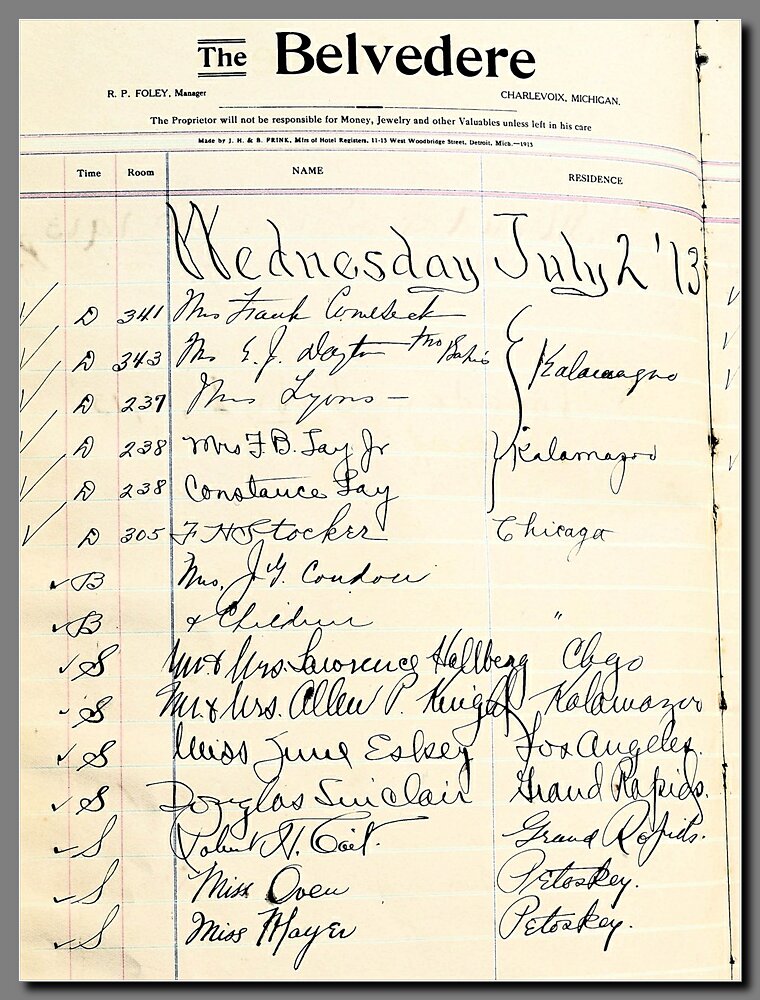 The Belvedere
R. P. FOLEY, Manager
CHARLEVOIX, MICHIGAN.
The Proprietor will not be responsible for Money, Jewelry and other Valuables unless left in his care
Made by J. H. & B. PRINK, Mfrs of Hotel Registers, 11-15 West Woodbridge Street, Detroit, Mich.—1913
Time Room NAME RESIDENCE
Wednesday July 2 '13
D 341 Mrs Frank
D 343 Mrs E. J. Dayton Kalamazoo
D 237 Mrs Lyons —
D 238 Mrs F. B. Lay Jr Kalamazoo
D 238 Constance Lay
D 305 F H Stocker Chicago
B Mrs. J. G. Condon
B & Children "
S Mr & Mrs. Lawrence Hallberg Chgo
S Mr & Mrs. Allen P. Knight Kalamazoo
S Miss June Eskey Los Angeles.
S Douglas Sinclair Grand Rapids.
S Robert H. Grand Rapids.
S Miss Oven Petoskey.
S Miss Mayer Petoskey.